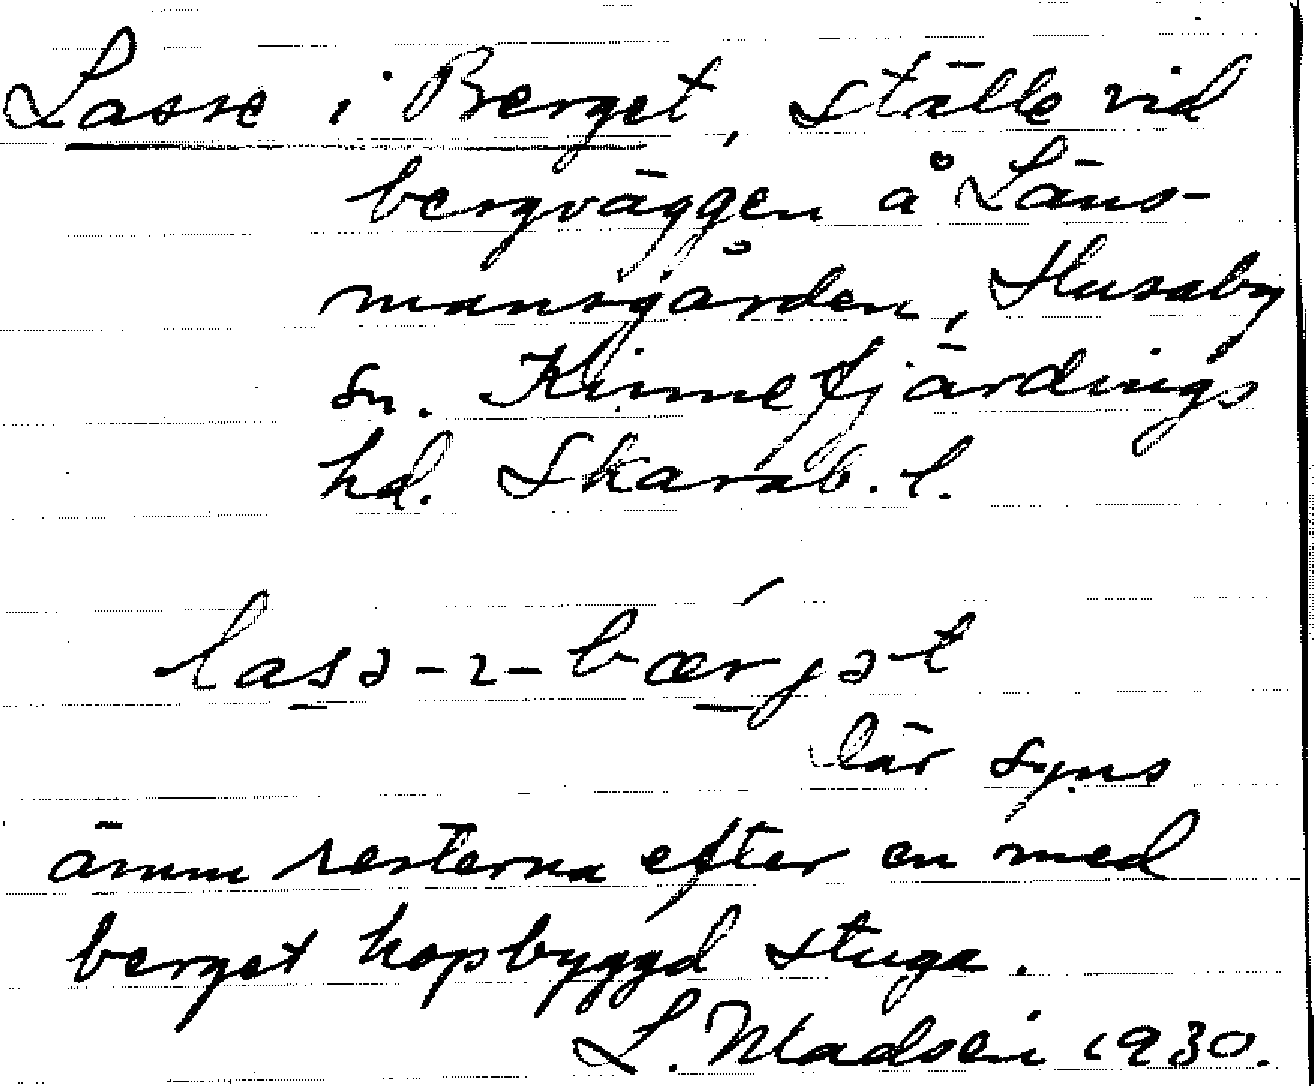 Lasse i Berget, ställe vid
bergväggen å Läns-
mansgården, Husaby
sn. Kinnefjärdings
hd. Skarab. l.
lasə-ɩ-bærjət
Här syns
ännu resterna efter en med
berget hopbyggd stuga.
L. Madsén 1930.